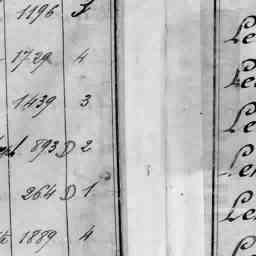 1196
1729 4
1439 3
893 D 2
264 D 1
1889 4
Le
Le
Le
Le
Le
Le